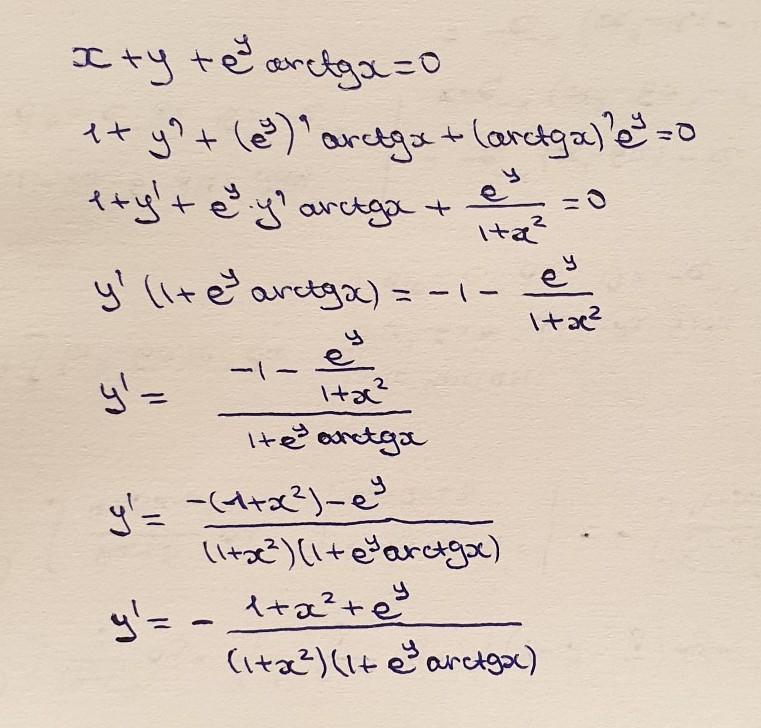 x + y + e^y arctgx = 0
1 + y' + (e^y)' arctgx + (arctgx)' e^y = 0
1 + y' + e^y · y' arctgx + e^y/(1+x²) = 0
y' (1 + e^y arctgx) = -1 - e^y/(1+x²)
y' = (-1 - e^y/(1+x²))/(1 + e^y arctgx)
y' = (-(1+x²) - e^y)/((1+x²)(1 + e^y arctgx))
y' = - (1 + x² + e^y)/((1+x²)(1 + e^y arctgx))